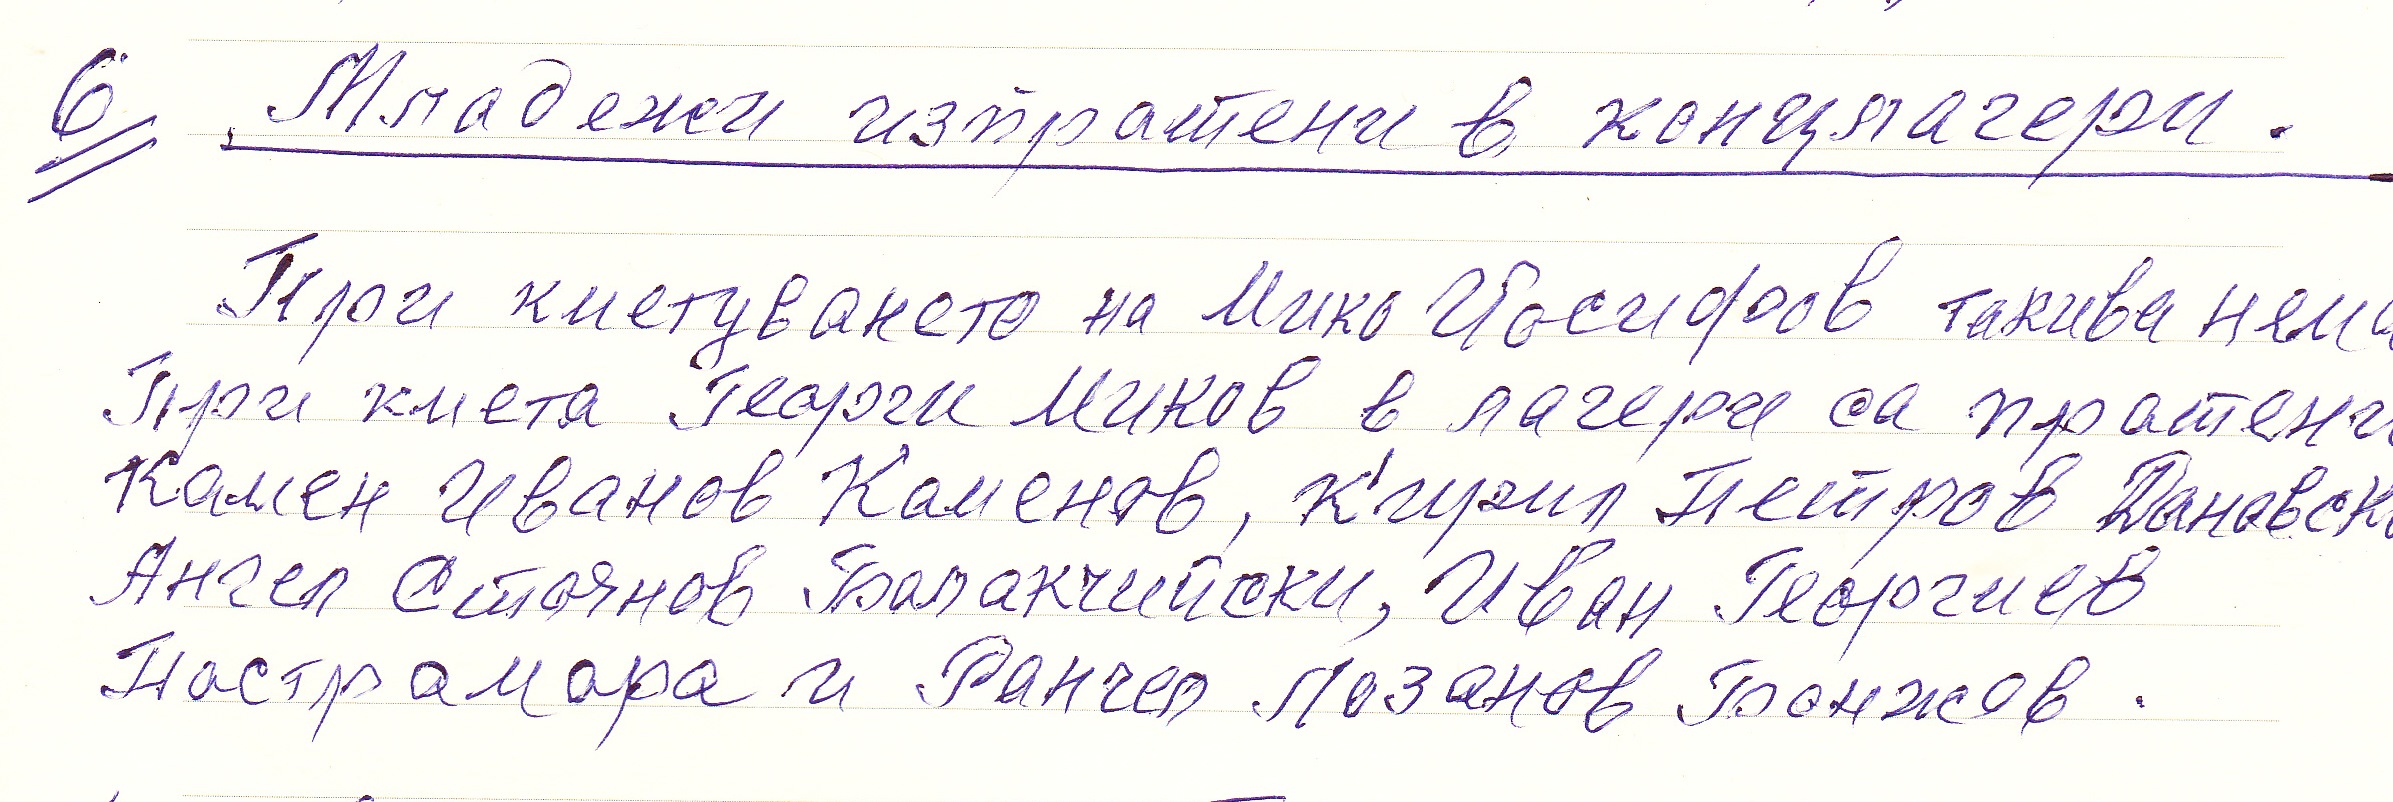 6 Младежи изпратени в концлагери.
При кметуването на Мико Йосифов такива няма
При кмета Георги Миков в лагери са пратени
Камен Иванов Каменов, Кирил Петров Дановски
Ангел Стоянов Балакчийски, Иван Георгиев
Пострамора и Рангел Лозанов Бонжов.